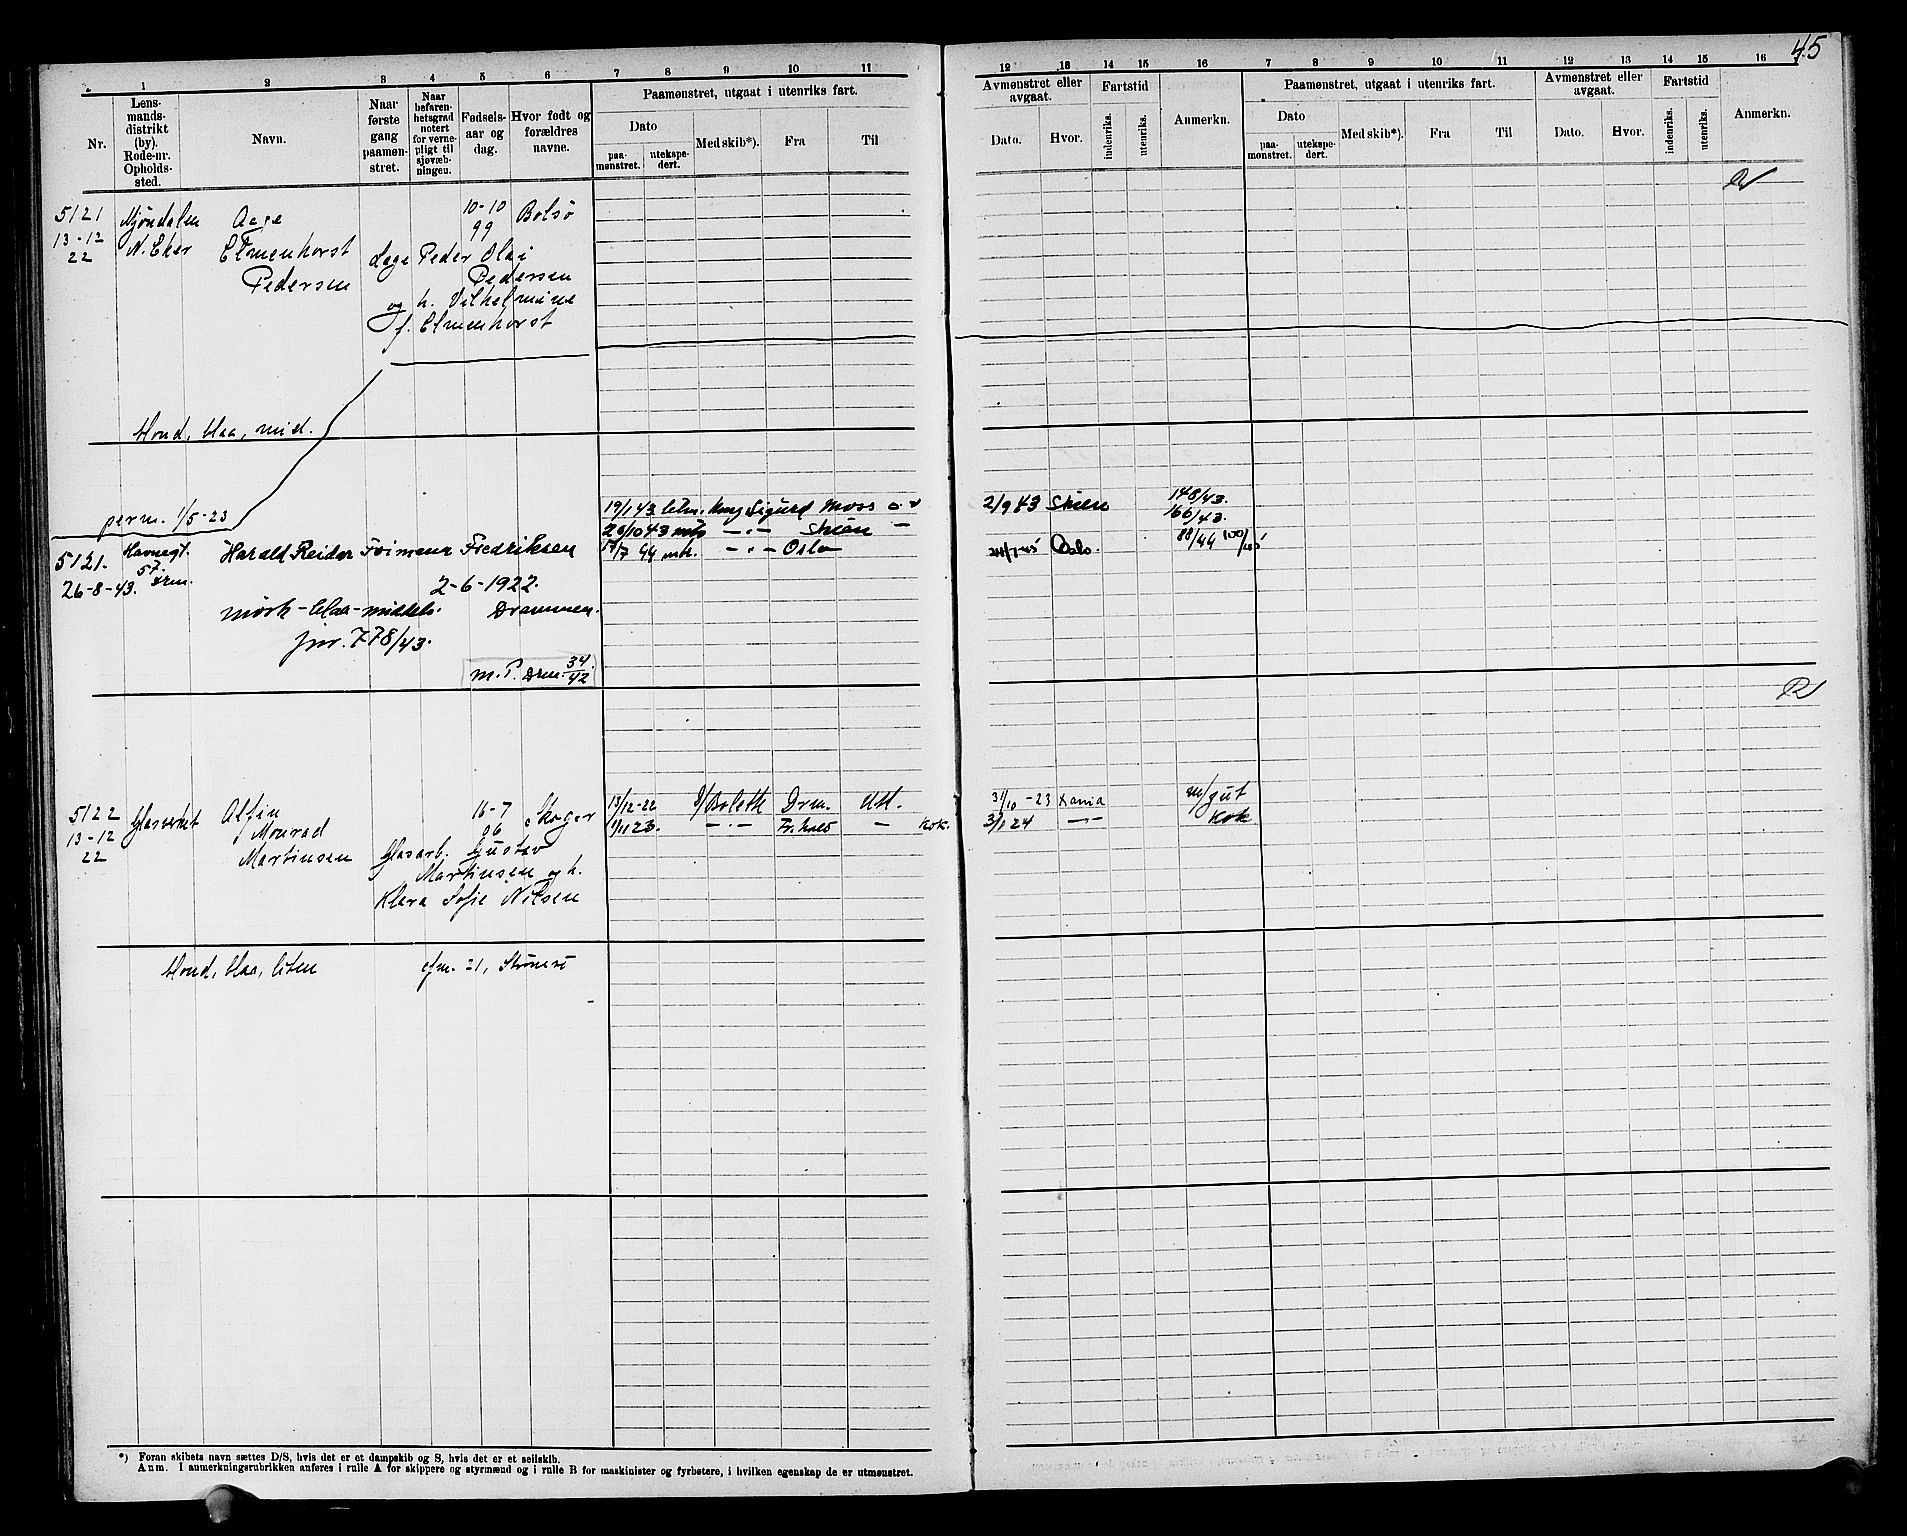 45
1 2 3 4 5 6 7 8 9 10 11
12 13 14 15 16 7 8 9 10 11 12 13 14 15 16
Nr.
Lens-
mands-
distrikt
(by).
Rode-nr.
Opholds-
sted.
Navn.
Naar
første
gang
paamøn-
stret.
Naar
befaren-
hetsgrad
notert
for verne-
pligt til
sjøvæb-
ningen.
Fødsels-
aar og
dag.
Hvor født og
forældres
navne.
Paamønstret, utgaat i utenriks fart.
Dato
paa-
mønstret.
utekspe-
dert.
Med skib*).
Fra
Til
Avmønstret eller
avgaat.
Dato.
Hvor.
Fartstid
indenriks.
utenriks.
Anmerkn.
Paamønstret, utgaat i utenriks fart.
Dato
paa-
mønstret.
utekspe-
dert.
Med skib*).
Fra
Til
Avmønstret eller
avgaat.
Dato.
Hvor.
Fartstid
indenriks.
utenriks.
Anmerkn.
5121 Mjøndalen Aage 10-10 Bolsø
13-12 N. Eker Elmenhorst 99
22 Pedersen
Peder Olai
Pedersen
og h. Vilhelmine
f. Elmenhorst
blond, blaa, mid.
perm. 1/5-23
19/1 43 Kong Sigurd Moss 2/9 43 Skien 148/43.
26/10 43 —"— Skien — 166/43.
5121. Havnegt. Harald Reidar Fredriksen 17/7 44 —"— Oslo Oslo. 88/44 100/45
57.
26-8-43. Drm. 2-6-1922.
mørk-blaa-middels. Drammen.
jnr. 778/43.
m.P. Drm. 34/42
R
5122 Glasverket Alfin 16-7 Skoger 13/12-22 S/Boletk Drm. Utl. 31/10-23 Xania m/gut
13-12 Monrad 06 1/11 23. —"— Fr.hald — Kok. 3/1 24 —"— Kok
22 Martinsen Glasarb. Gustav
Martinsen og h.
Klara Sofie Nilsen
blond, blaa, liten efm. 21, Strømsø
*) Foran skibets navn sættes D/S, hvis det er et dampskib og S, hvis det er et seilskib.
Anm. I anmerkningsrubrikken anføres i rulle A for skippere og styrmænd og i rulle B for maskinister og fyrbøtere, i hvilken egenskap de er utmønstret.